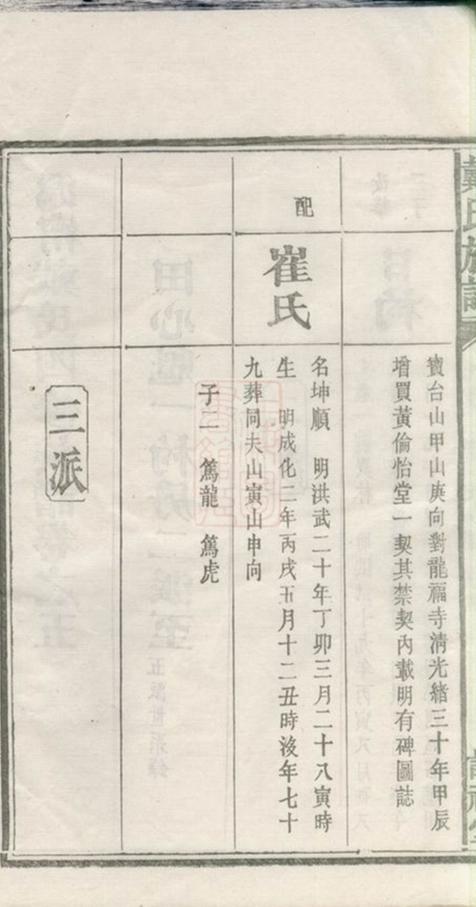 戴氏族譜
寶台山甲山庚向對龍福寺清光緒三十年甲辰
增買黃倫怡堂一契其禁契內載明有碑圖誌
配
崔氏
名坤順　明洪武二十年丁卯三月二十八寅時
生　明成化二年丙戌五月十二丑時沒年七十
九葬同夫山寅山申向
子二　篤龍　篤虎
三派